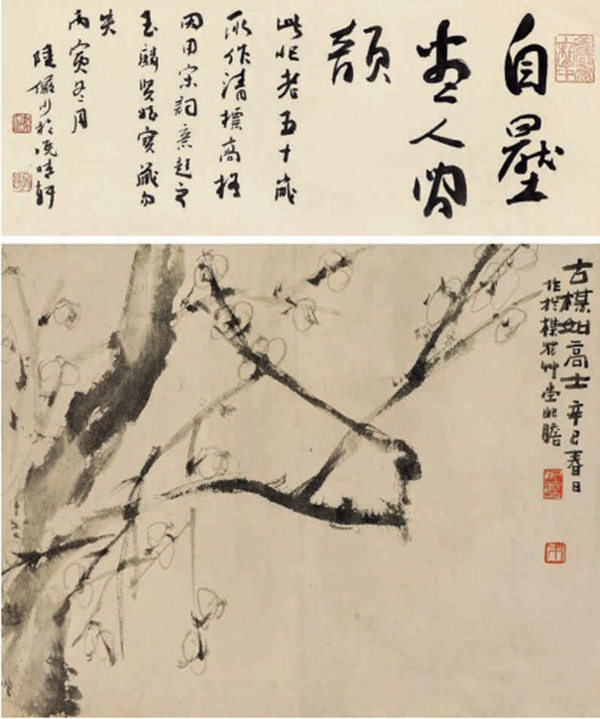 自壓
盡人間
韻
此屺老五十歲
所作清標高格
因用宋詞意題之
玉麟賢寶藏勿
失
丙寅冬月
陸儼少於晚晴軒
古楳如高士 辛巳春日
作於楳花艸堂屺瞻